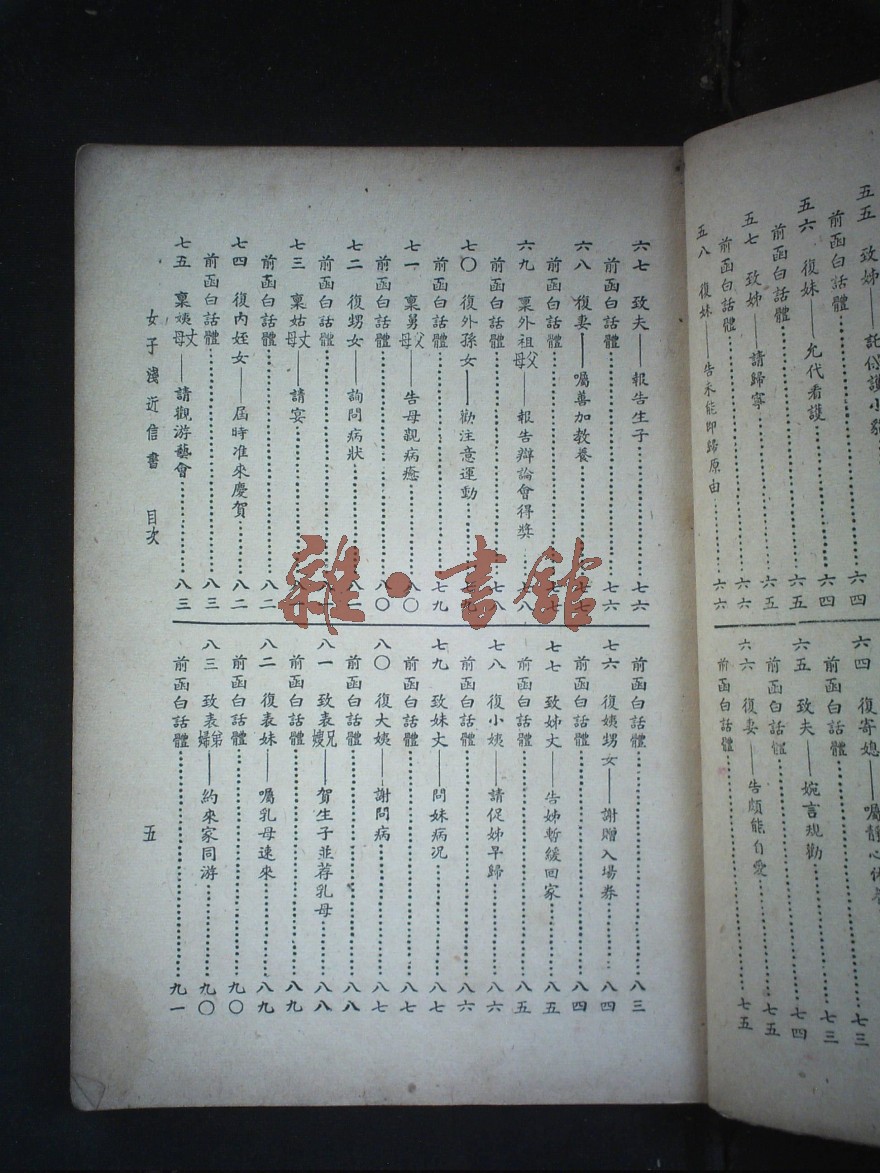 五五 致姊——託代護小
前函白話體……六四
五六 復妹——允代看護……六四
前函白話體……六五
五七 致姊——請歸寧……六五
前函白話體……六六
五八 復妹——告未能即歸原由……六六
六四 復寄媳——囑靜心休
前函白話體……七三
六五 致夫——婉言規勸……七三
前函白話體……七四
六六 復妻——告頗能自愛……七五
前函白話體……七五
六七 致夫——報告生子……七六
前函白話體……七六
六八 復妻——囑善加教養……七七
前函白話體……七七
六九 稟外祖父母——報告辯論會得獎……七八
前函白話體……七八
七〇 復外孫女——勸注意運動……七九
前函白話體……七九
七一 稟舅父母——告母親病癒……八〇
前函白話體……八〇
七二 復甥女——詢問病狀……八一
前函白話體……八一
七三 稟姑丈母——請宴……八一
前函白話體……八二
七四 復內姪女——屆時准來慶賀……八二
前函白話體……八三
七五 稟姨丈母——請觀游藝會……八三
前函白話體……八三
七六 復姨甥女——謝贈入場券……八四
前函白話體……八四
七七 致姊丈——告姊暫緩回家……八五
前函白話體……八五
七八 復小姨——請促姊早歸……八六
前函白話體……八六
七九 致妹丈——問妹病況……八七
前函白話體……八七
八〇 復大姨——謝問病……八七
前函白話體……八八
八一 致表兄嫂——賀生子並荐乳母……八八
前函白話體……八九
八二 復表妹——囑乳母速來……八九
前函白話體……九〇
八三 致表弟婦——約來家同游……九〇
前函白話體……九一
女子淺近信書 目次 五
雜·書館